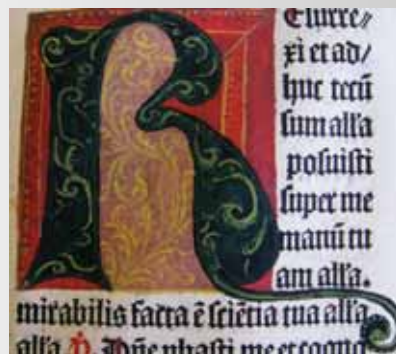 R Esurre⸗
xi et ad/
huc tecū
sum all'a
posuisti
super me
manū tu
am all'a.
mirabilis facta ē sciētia tua all'a
all'a. P. Dñe ꝓbasti me et cogno